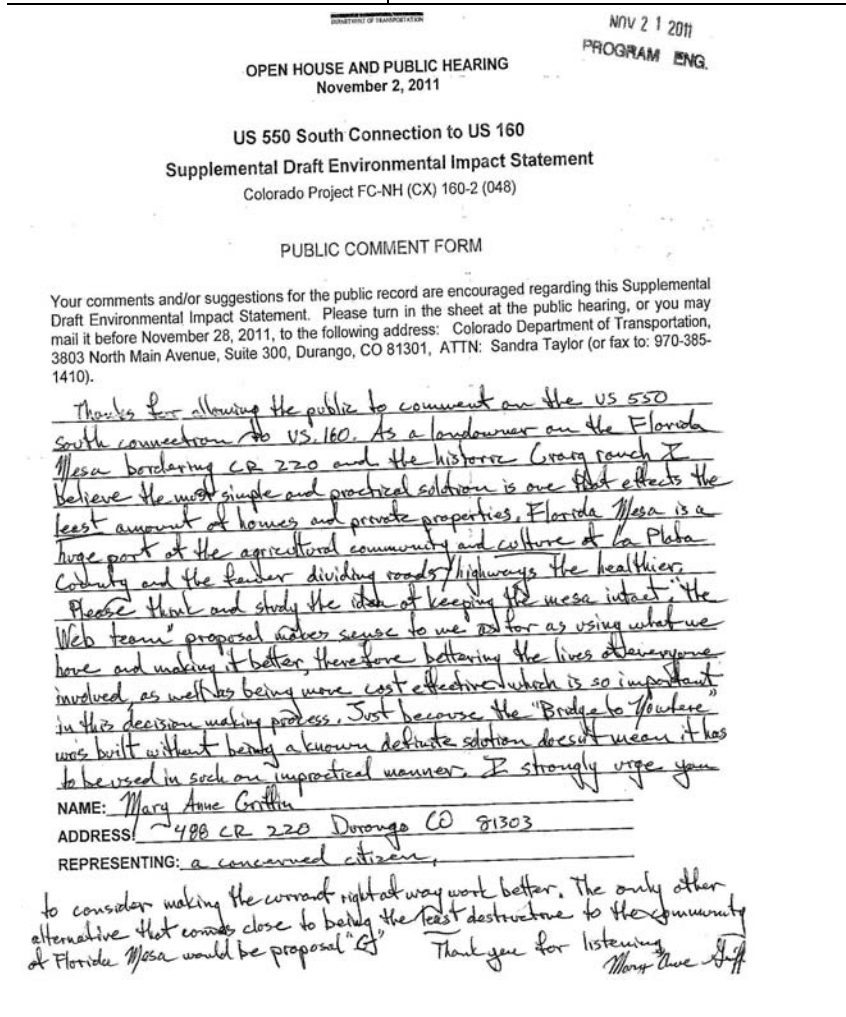 DEPARTMENT OF TRANSPORTATION
NOV 21 2011
PROGRAM ENG.
OPEN HOUSE AND PUBLIC HEARING
November 2, 2011
US 550 South Connection to US 160
Supplemental Draft Environmental Impact Statement
Colorado Project FC-NH (CX) 160-2 (048)
PUBLIC COMMENT FORM
Your comments and/or suggestions for the public record are encouraged regarding this Supplemental
Draft Environmental Impact Statement. Please turn in the sheet at the public hearing, or you may
mail it before November 28, 2011, to the following address: Colorado Department of Transportation,
3803 North Main Avenue, Suite 300, Durango, CO 81301, ATTN: Sandra Taylor (or fax to: 970-385-
1410).
Thanks for allowing the public to comment on the US 550
south connection to US. 160. As a landowner on the Florida
Mesa bordering CR 220 and the historic Craig ranch I
believe the most simple and practical solution is one that effects the
least amount of homes and private properties. Florida Mesa is a
huge part of the agricultural community and culture of La Plata
County and the fewer dividing roads/highways the healthier.
Please think and study the idea of keeping the mesa intact. "the
Web team" proposal makes sense to me as far as using what we
have and making it better, therefore bettering the lives of everyone
involved, as well as being more cost effective which is so important
in this decision making process. Just because the "Bridge to Nowhere"
was built without being a known definite solution doesn't mean it has
to be used in such an impractical manner. I strongly urge you
NAME: Mary Anne Griffin
ADDRESS: 488 CR 220 Durango CO 81303
REPRESENTING: a concerned citizen,
to consider making the currant right of way work better. The only other
alternative that comes close to being the least destructive to the community
of Florida Mesa would be proposal "G" Thank you for listening
Mary Anne Griff